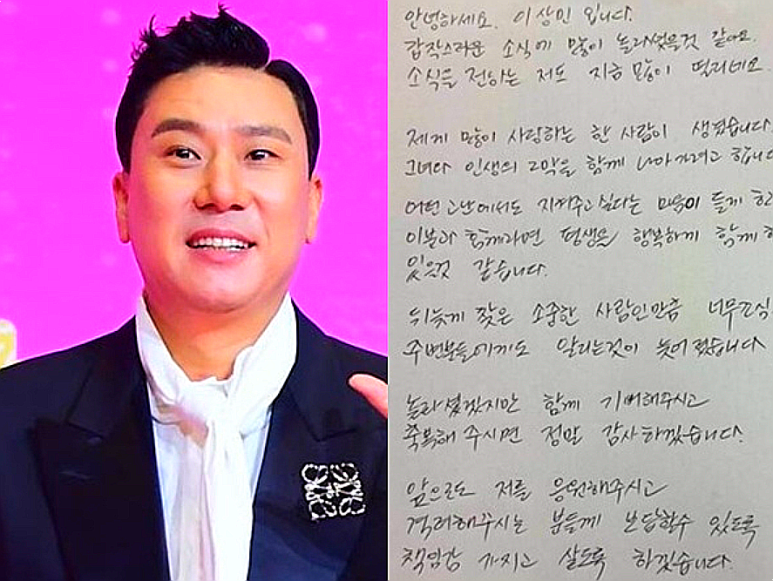 안녕하세요. 이상민 입니다.
갑작스러운 소식에 많이 놀라셨을것 같아요.
소식을 전하는 저도 지금 많이 떨리네요.
제게 많이 사랑하는 한 사람이 생겼습니다
그녀와 인생의 2막을 함께 나아가려고 합니다
어떤 고난에서도 지켜주고싶다는 마음이 들게 하
이분과 함께라면 평생을 행복하게 함께 하
있을것 같습니다.
뒤늦게 찾은 소중한 사람인만큼 너무조심
주변분들에게도 알리는것이 늦어졌습니다
놀라셨겠지만 함께 기뻐해주시고
축복해 주시면 정말 감사하겠습니다.
앞으로도 저를 응원해주시고
격려해주시는 분들께 보답할수 있도록
책임감 가지고 살도록 하겠습니다.